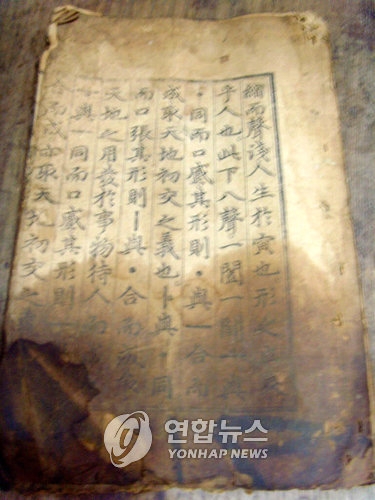 縮而聲淺人生於寅也形之立
乎人也此下八聲一闔一闢
ㆍ同而口蹙其形則ㆍ與ㅡ合而
成取天地初交之義也ㅏ與ㆍ同
而口張其形則ㅣ與ㆍ合而成
天地之用發於事物待人而
與ㅡ同而口蹙其形則ㅡ
合而成亦取天地初交之
연합뉴스
YONHAP NEWS